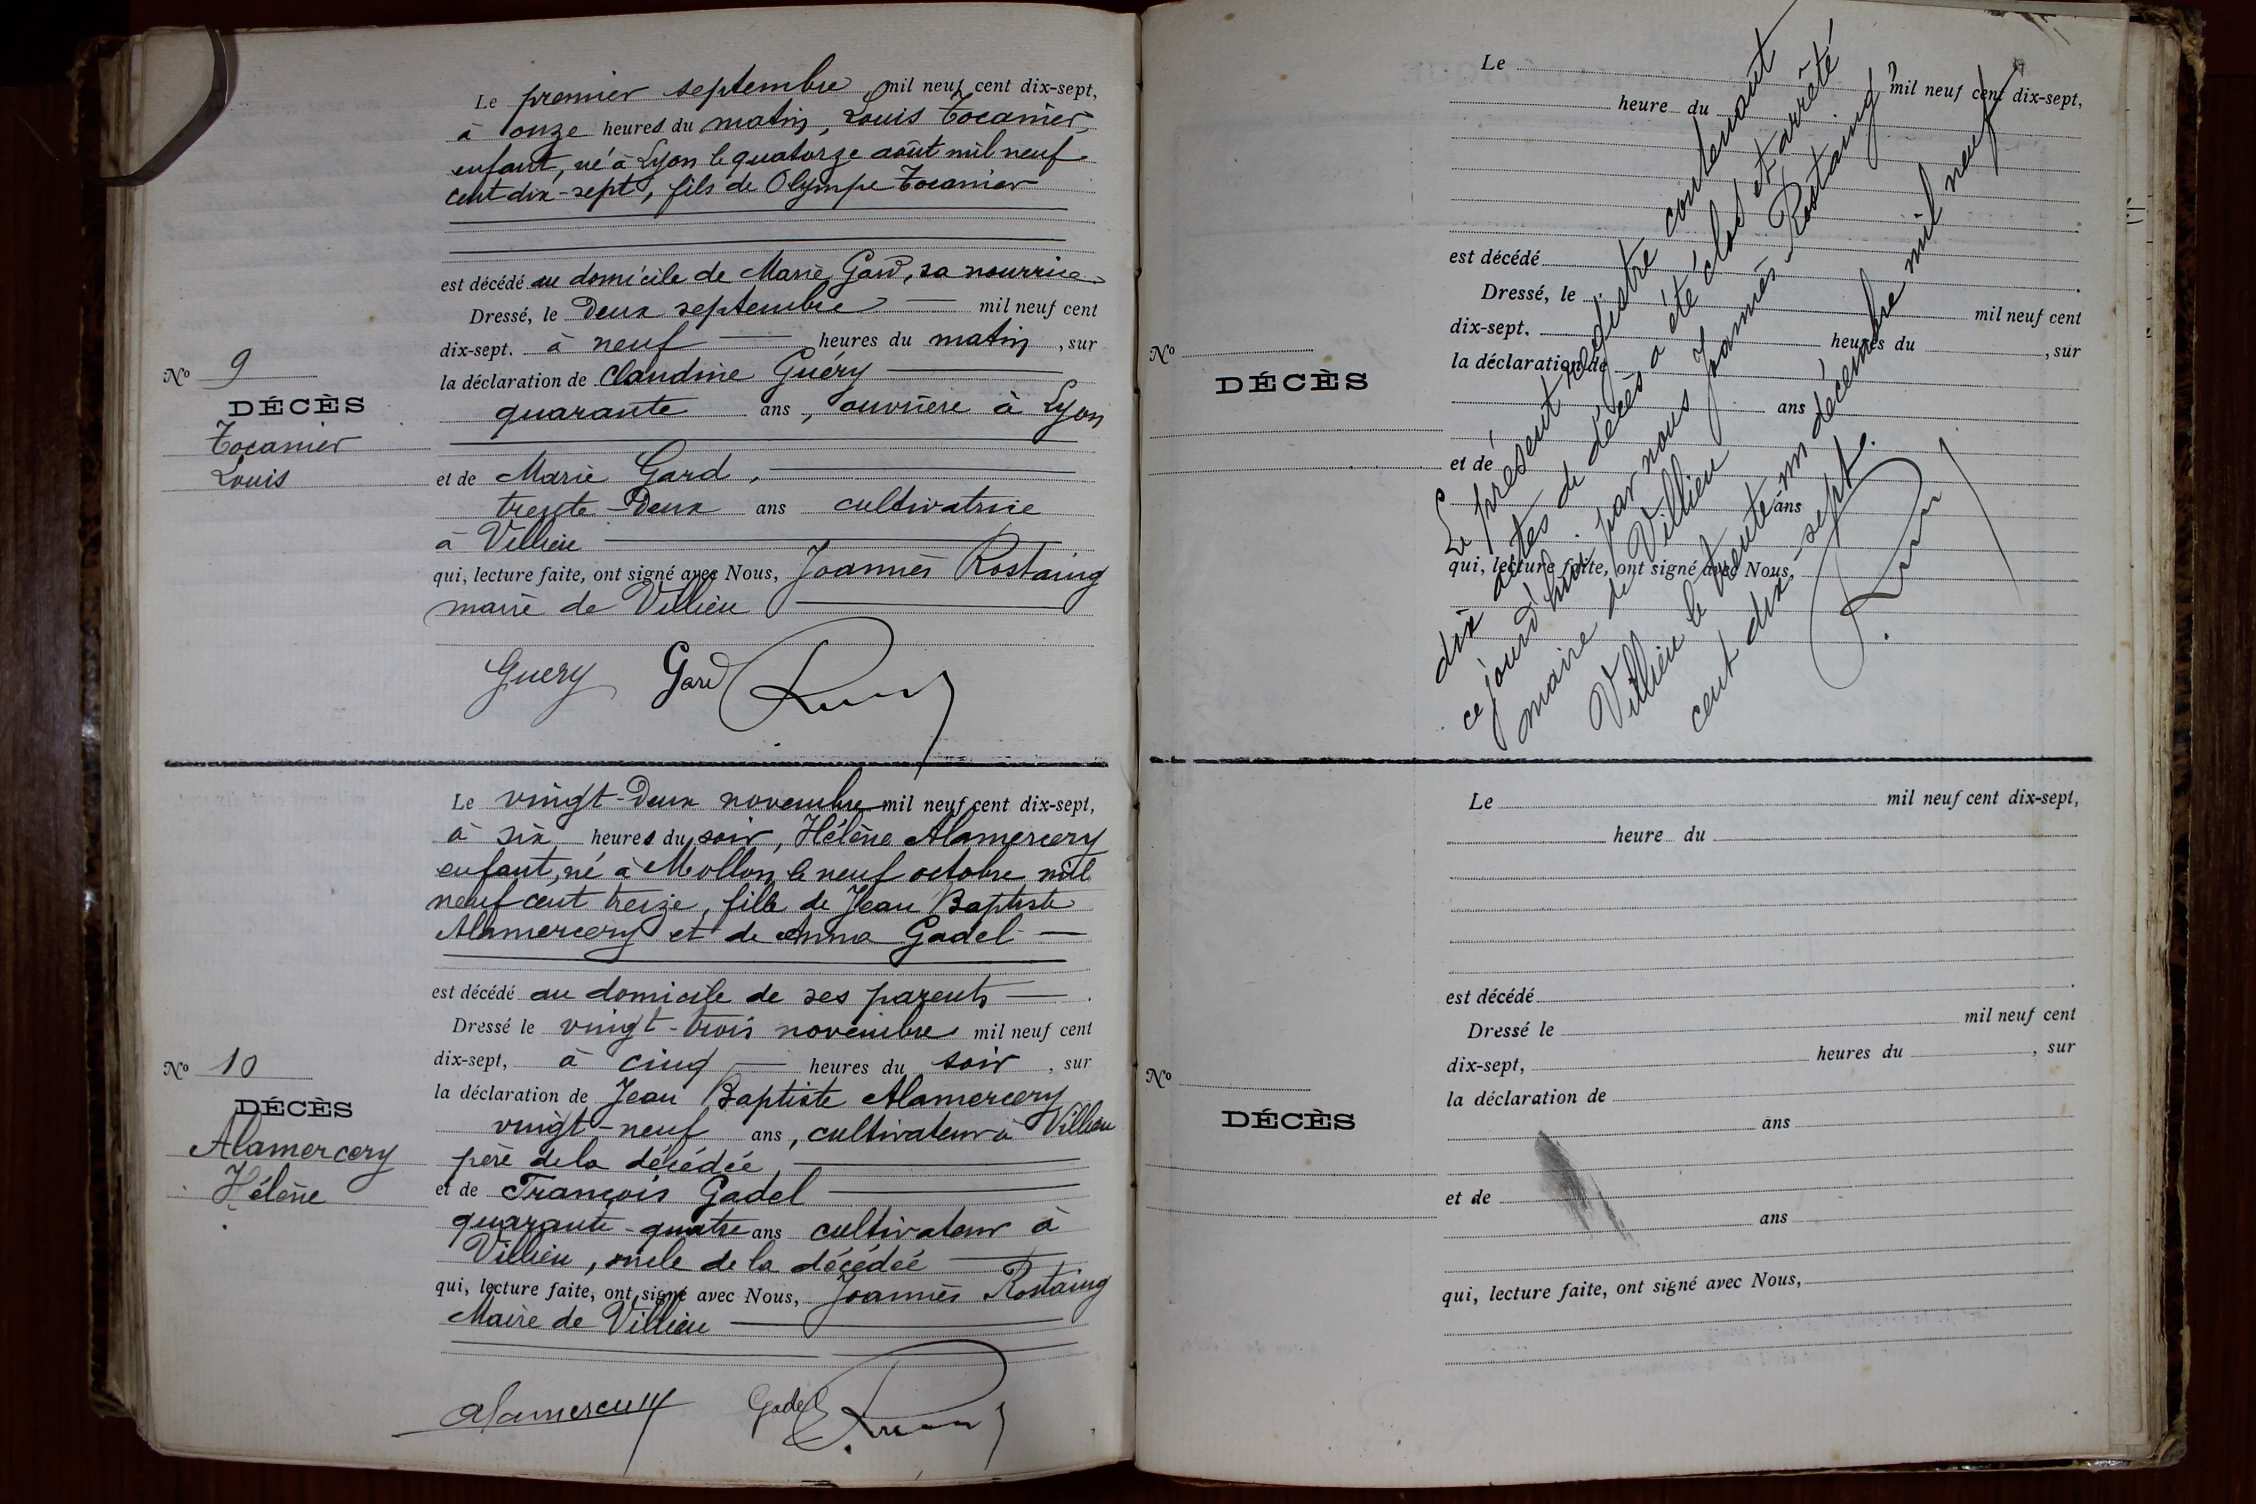 Le premier septembre mil neuf cent dix-sept,
à onze heures du matin, Louis Tocanier,
enfant, né à Lyon le quatorze août mil neuf
cent dix-sept, fils de Olympe Tocanier
est décédé au domicile de Marie Gard, sa nourrice
Dressé, le Deux septembre mil neuf cent
dix-sept. à neuf heures du matin, sur
No 9
la déclaration de Claudine Guéry
DÉCÈS
quarante ans, ouvrière à Lyon
Tocanier
Louis
et de Marie Gard,
trente-Deux ans cultivatrice
à Villieu
qui, lecture faite, ont signé avec Nous, Joannès Rostaing
maire de Villieu
Guery Gard
Le vingt-Deux novembre mil neuf cent dix-sept,
à six heures du soir, Hélène Alamercery
enfant, né à Mollon le neuf octobre mil
neuf cent treize, fille de Jean Baptiste
Alamercery et de Anna Gadel
est décédé au domicile de ses parents
Dressé le vingt-trois novembre mil neuf cent
dix-sept, à cinq heures du soir, sur
No 10
la déclaration de Jean Baptiste Alamercery
DÉCÈS
vingt-neuf ans, cultivateur à Villieu
Alamercery
père de la décédée,
Hélène
et de François Gadel
quarante-quatre ans cultivateur à
Villieu, oncle de la décédée
qui, lecture faite, ont signé avec Nous, Joannès Rostaing
Maire de Villieu
Alamercery Gadel
Le mil neuf cent dix-sept,
heure du
est décédé
Dressé, le mil neuf cent
dix-sept. heures du , sur
No
la déclaration de
DÉCÈS
ans
et de
ans
qui, lecture faite, ont signé avec Nous,
Le présent registre contenant
dix actes de décès a été clos et arrêté
ce jourd'hui par nous Joannès Rostaing
maire de Villieu
Villieu le trente un décembre mil neuf
cent dix-sept.
Le mil neuf cent dix-sept,
heure du
est décédé
Dressé le mil neuf cent
dix-sept, heures du , sur
No
la déclaration de
DÉCÈS
ans
et de
ans
qui, lecture faite, ont signé avec Nous,